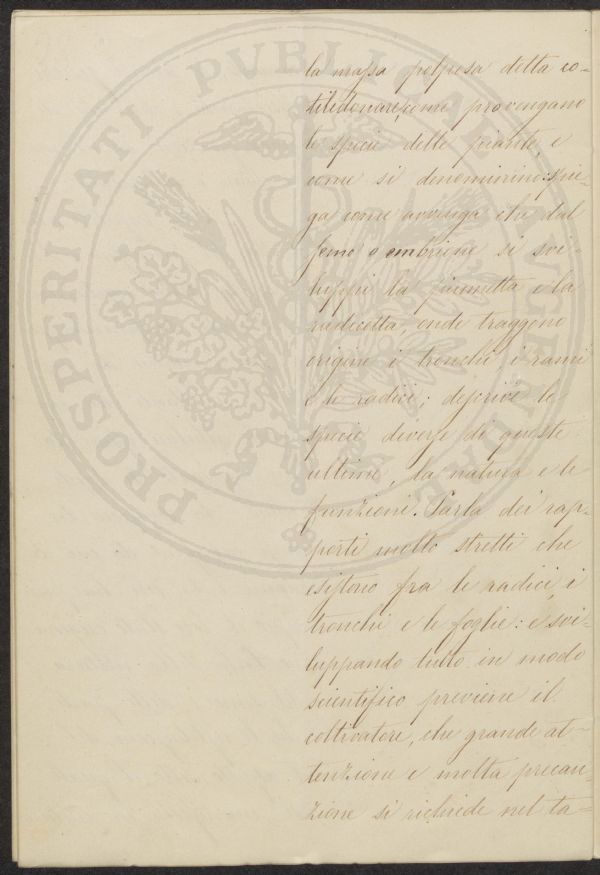 la massa polposa detta co-
tiledonare, come provengano
le specie delle piante, e
come si denominino: spie-
ga come avvenga che dal
seme o embrione si svi-
luppi la piumetta e la
radicetta, onde traggono
origine i tronchi, i rami
e le radici; descrive le
specie diverse di queste
ultime, la natura e le
funzioni. Parla dei rap-
porti molto stretti che
esistono fra le radici, i
tronchi e le foglie: e svi-
luppando tutto in modo
scientifico previene il
coltivatore, che grande at-
tenzione e molta precau-
zione si richiede nel ta-
PROSPERITATI PVBLICAE